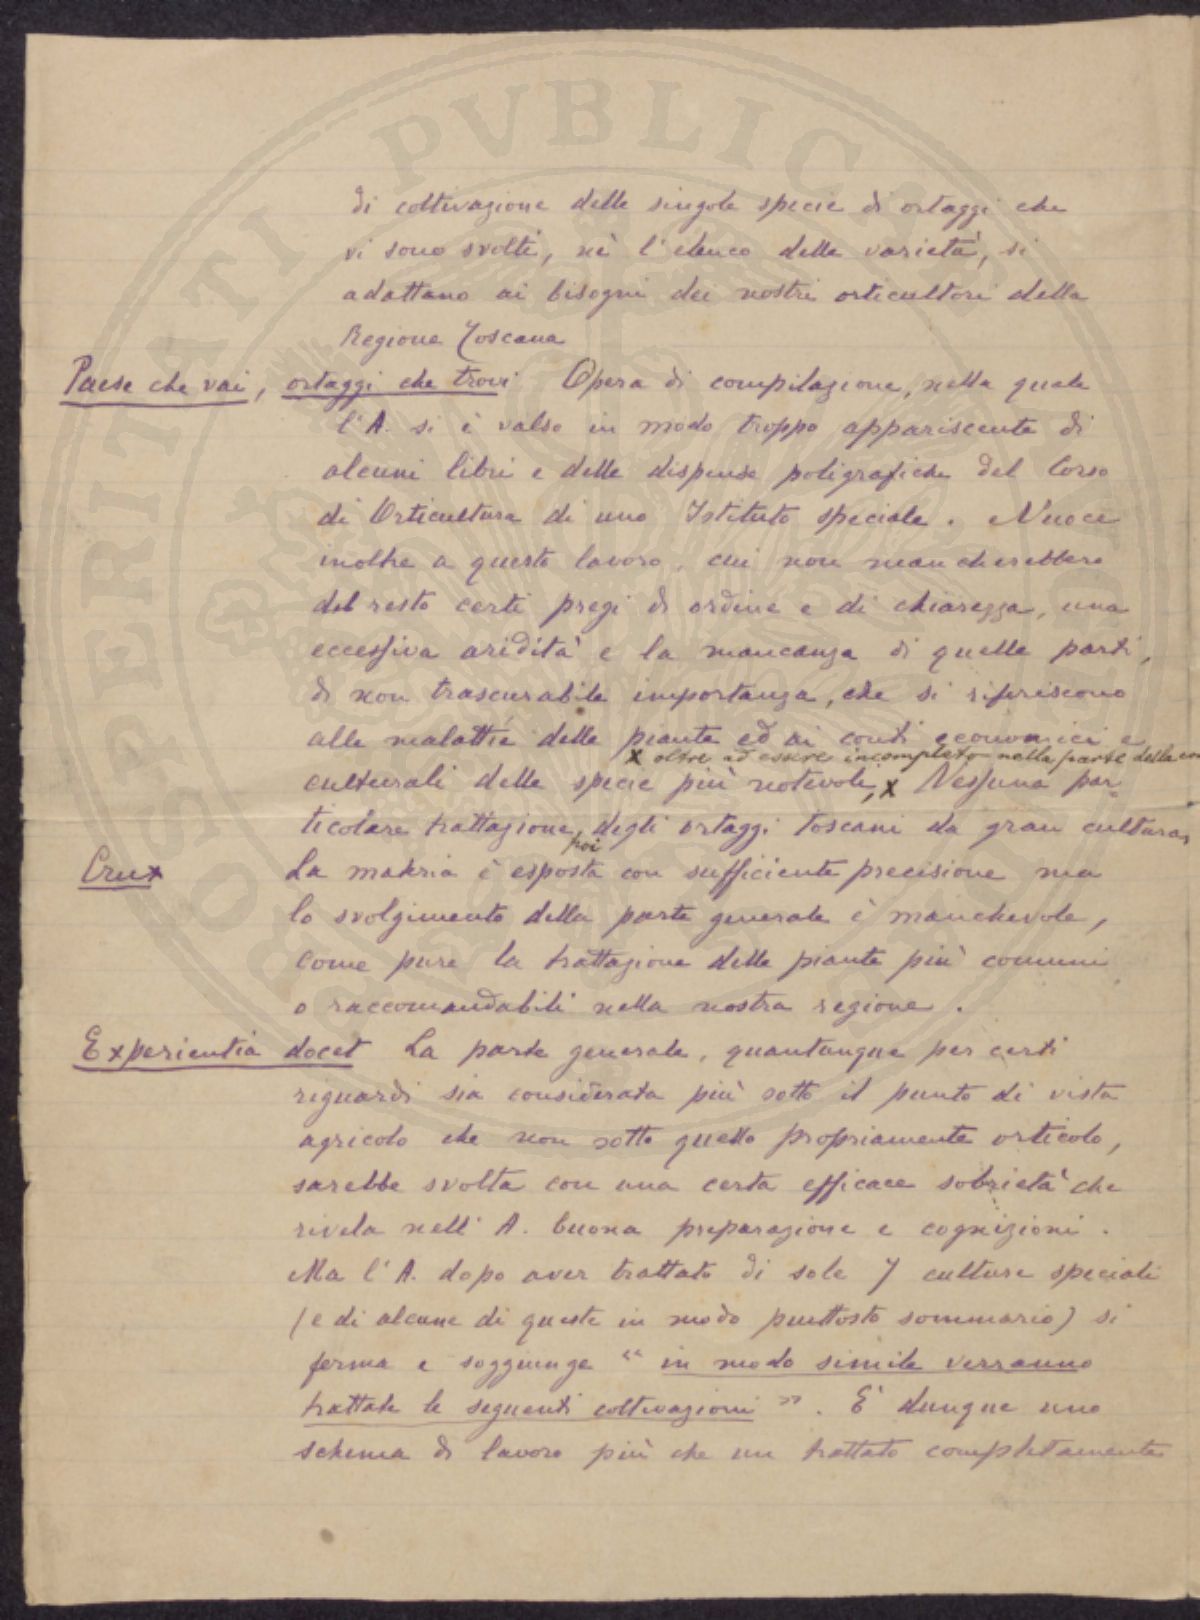 di coltivazione delle singole specie di ortaggi che
vi sono svolti, nè l'elenco delle varietà, si
adattano ai bisogni dei nostri orticultori della
Regione Toscana
Paese che vai, ortaggi che trovi Opera di compilazione, nella quale
l'A. si è valso in modo troppo appariscente di
alcuni libri e delle dispense poligrafiche del Corso
di Orticultura di uno Istituto speciale. Nuoce
inoltre a questo lavoro, cui non mancherebbero
del resto certi pregi di ordine e di chiarezza, una
eccessiva aridità e la mancanza di quelle parti,
di non trascurabile importanza, che si riferiscono
alle malattie delle piante ed ai conti economici e
x oltre ad essere incompleto nella parte della
culturali delle specie più notevoli, x Nessuna par-
ticolare trattazione, degli ortaggi toscani da gran cultura
poi
Crux La materia è esposta con sufficiente precisione ma
lo svolgimento della parte generale è manchevole,
come pure la trattazione delle piante più comuni
o raccomandabili nella nostra regione.
Experientia docet La parte generale, quantunque per certi
riguardi sia considerata più sotto il punto di vista
agricolo che non sotto quello propriamente orticolo,
sarebbe svolta con una certa efficace sobrietà che
rivela nell'A. buona preparazione e cognizioni.
Ma l'A. dopo aver trattato di sole 7 culture speciali
(e di alcune di queste in modo piuttosto sommario) si
ferma e soggiunge "in modo simile verranno
trattate le seguenti coltivazioni". È dunque uno
schema di lavoro più che un trattato completamente
PROSPERITATI PVBLICAE